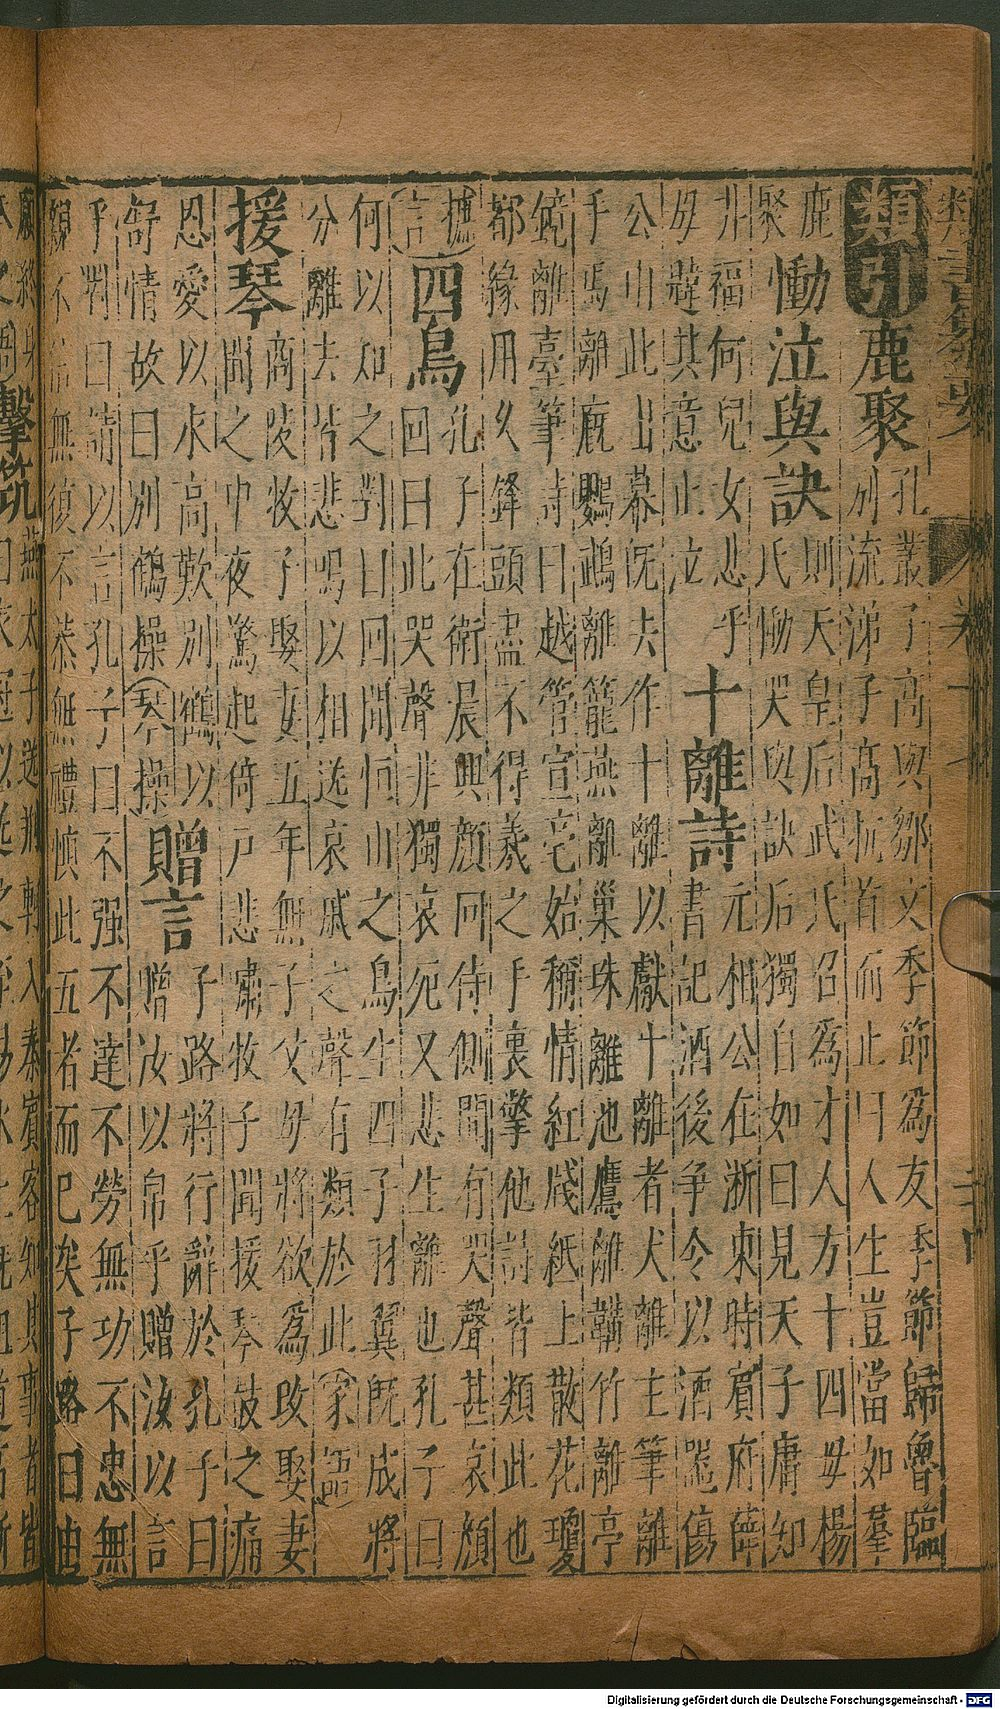 類書纂要 卷十
類引
鹿聚
孔叢子高與鄒文季節為友季節歸魯臨
別流涕子高抗首而止曰人生豈當如羣
鹿
聚
慟泣與訣
則天皇后武氏召為才人方十四毋楊
氏慟哭與訣后獨自如曰見天子庸知
非福何兒女悲乎
毋韙其意止泣
十離詩
元相公在浙東時賓府薛
書記酒後爭令以酒器傷
公此出幕旣去作十離以獻十離者犬離主筆離
手馬離廐鸚鵡離籠燕離巢珠離池鷹離鞲竹離亭
鏡離臺筆詩曰越管宣毫始稱情紅牋紙上散花瓊
都緣用久鋒頭盡不得羲之手裏擎他詩皆類此也
摭
言
四鳥
孔子在衛晨興顏回侍側聞有哭聲甚哀顏
回曰此哭聲非獨哀死又悲生離也孔子曰
何以知之對曰回聞恒山之鳥生四子羽翼旣成將
分離去皆悲鳴以相送哀戚之聲有類於此家語
援琴
商陵牧子娶妻五年無子父毋將欲為改娶妻
聞之中夜驚起倚戶悲嘯牧子聞援琴鼓之痛
恩愛以永高歎別鶴以
舒情故曰別鶴操琴操
贈言
子路將行辭於孔子曰
贈汝以帛乎贈汝以言
乎對曰請以言孔子曰不强不達不勞無功不忠無
親不信無復不恭無禮慎此五者而已矣子路曰由
願終身
擊筑
燕太子送荆軻入秦賓客知其事者皆
白衣冠以送之至易水上旣祖道高漸
Digitalisierung gefördert durch die Deutsche Forschungsgemeinschaft - DFG